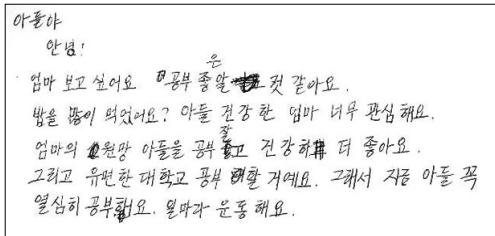 아들아
안녕!
엄마 보고 싶어요 공부 좋은 것 같아요.
밥을 많이 먹었어요? 아들 건강한 엄마 너무 관심해요.
엄마의 원망 아들을 공부 잘 건강하 더 좋아요.
그리고 유편한 대학교 공부 할 거예요. 그래서 지금 아들 꼭
열심히 공부해요. 날마다 운동해요.